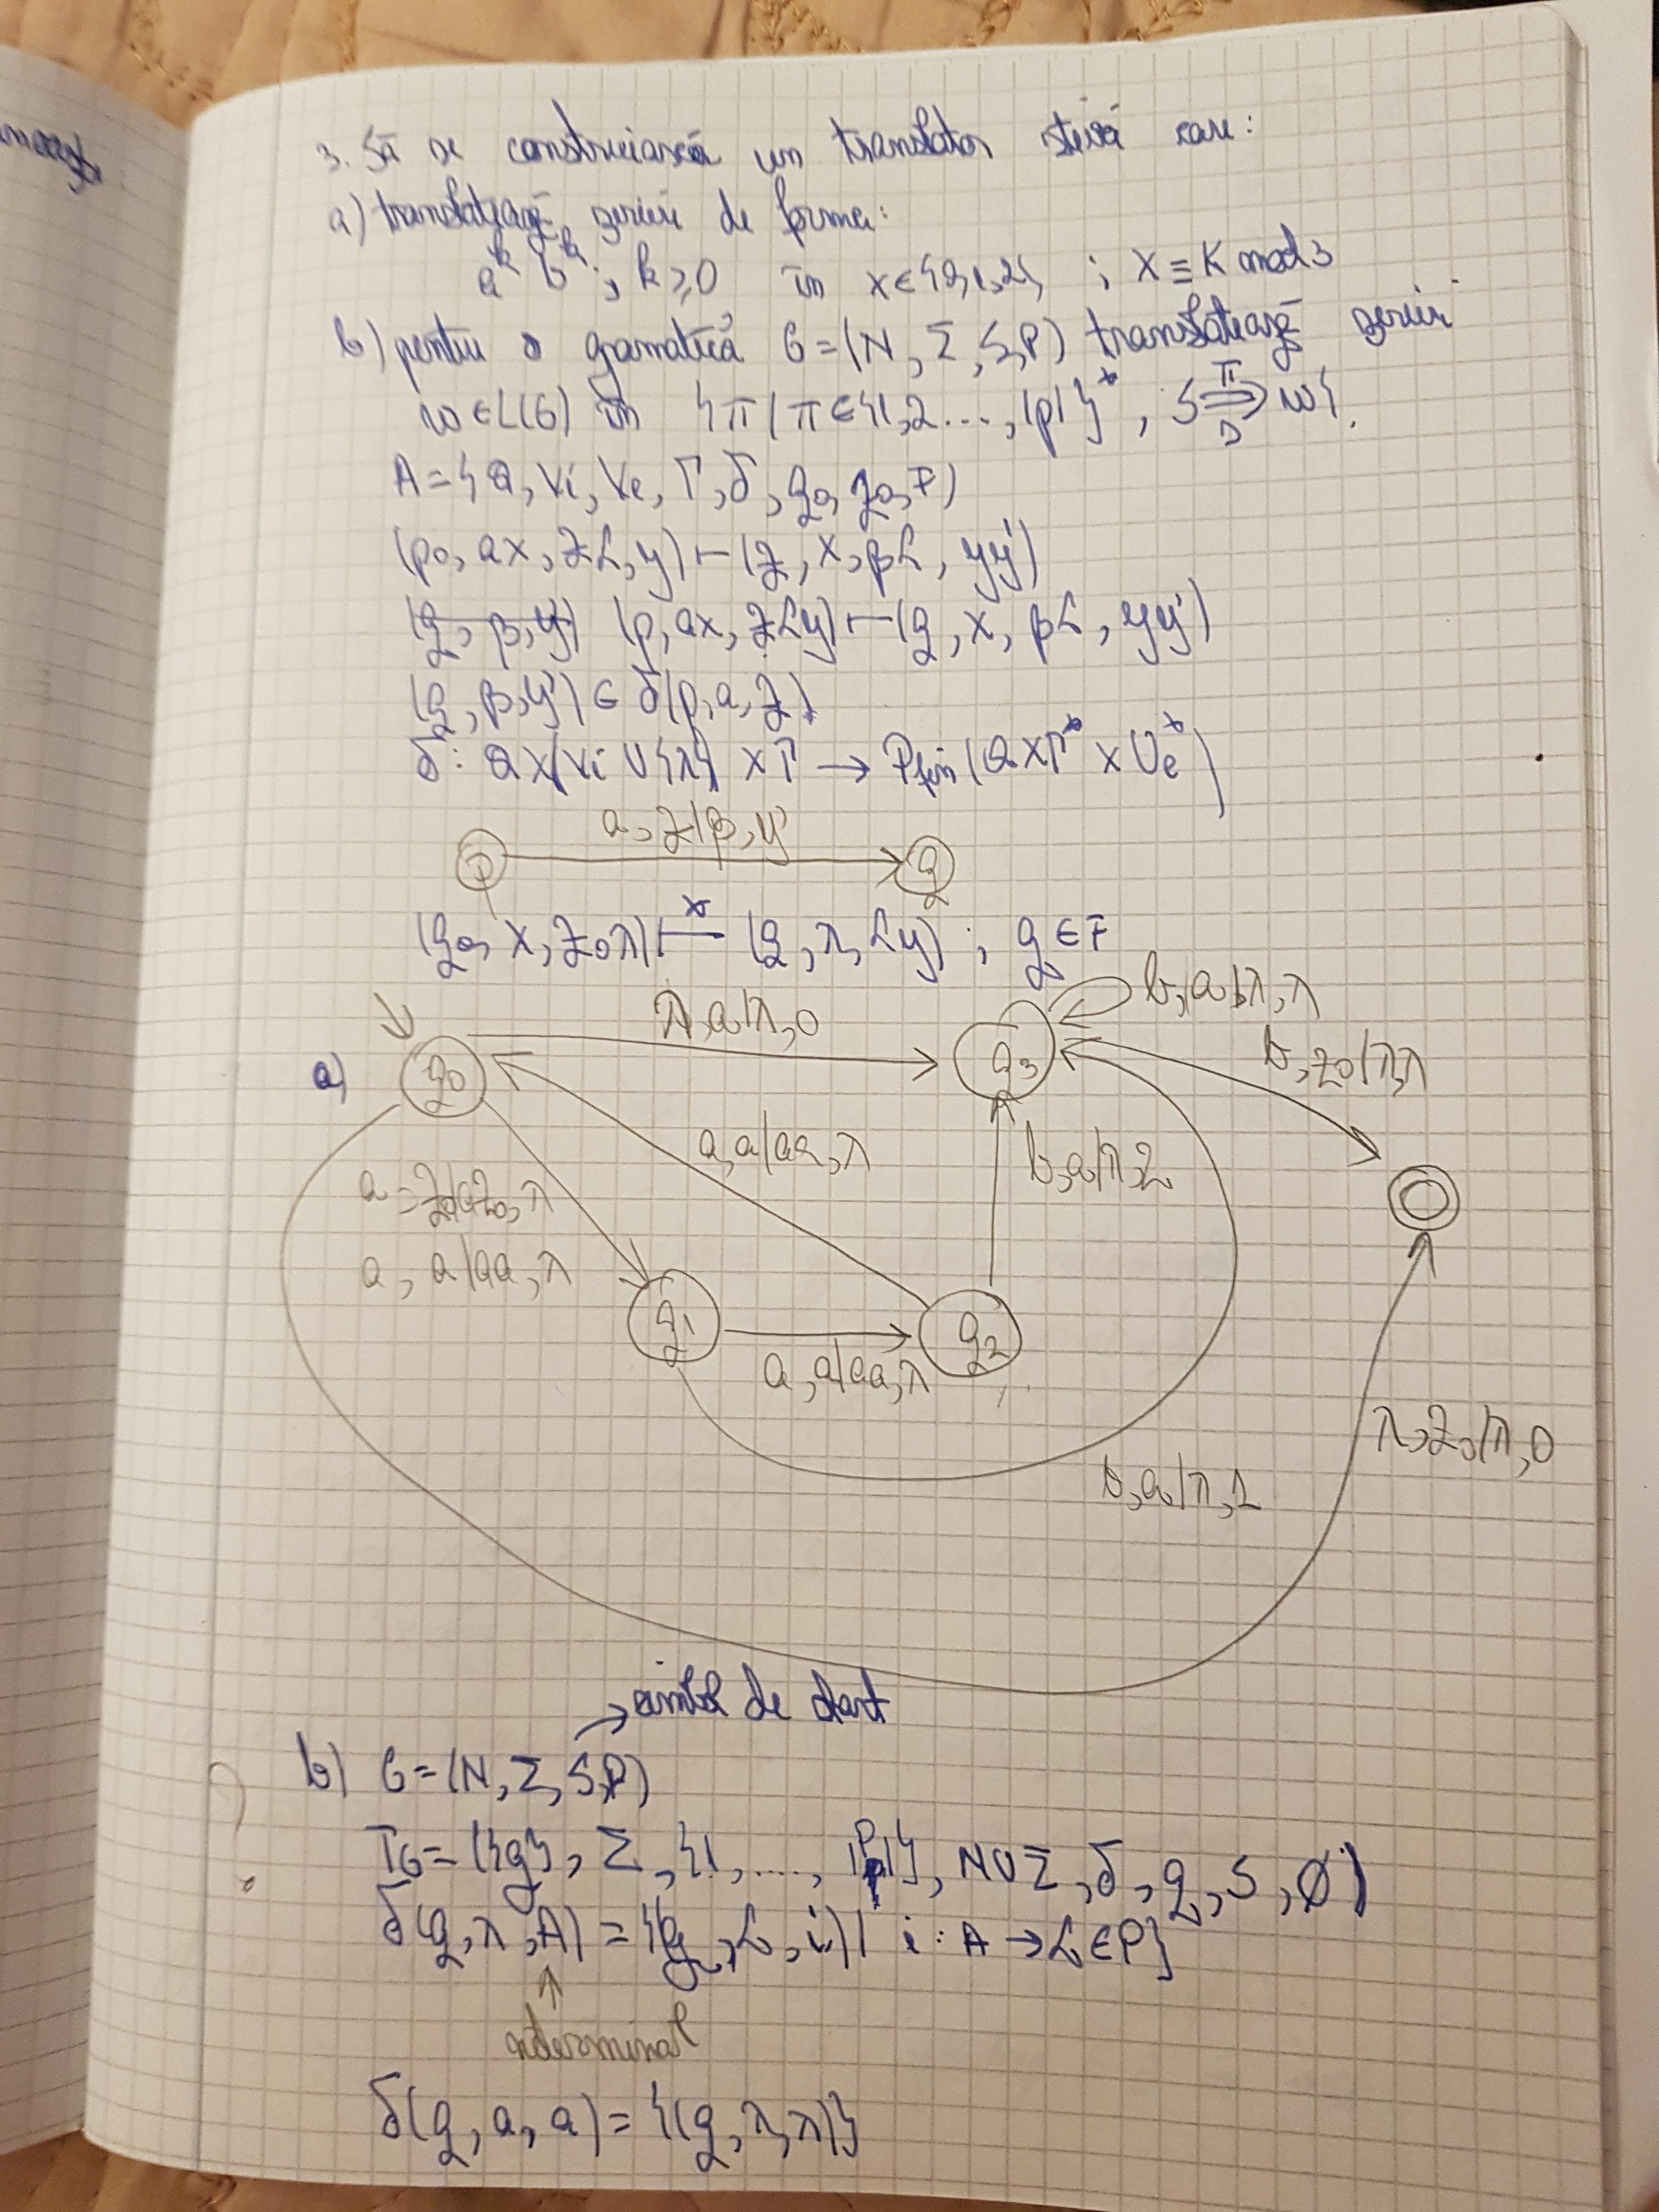 3. Să se construiască un translator stivă care:
a) translatează scrieri de forma:
a^k b^k ; k ≥ 0 în x ∈ {0,1,2} ; x ≡ K mod 3
b) pentru o gramatică G = (N, Σ, S, P) translatează scrieri
w ∈ L(G) în {π / π ∈ {1,2...,|P|}^*, S ⇒ w}.
A = {Q, Vi, Ve, Γ, δ, q0, z0, F)
(p0, ax, zL, y) ⊢ (q, x, βL, yy')
(p, ax, zLy) ⊢ (q, x, βL, yy')
(q, β, y') ∈ δ(p, a, z)
δ: Q x (Vi ∪ {λ} x Γ → Pfin (Q x Γ^* x Ve^*)
a, z | β, y'
p q
(q0, x, z0 λ) ⊢^* (q, λ, Ly) ; q ∈ F
a)
λ, a | λ, 0
b, a | λ, λ
q0 q3
b, z0 | λ, λ
a, a | aa, λ
b, a | λ, 2
a, z0 | az0, λ
a, a | aa, λ
q1 q2
a, a | aa, λ
λ, z0 | λ, 0
b, a | λ, 1
→ simbol de start
b) G = (N, Σ, S, P)
TG = ({q}, Σ, {1, ...., |P|}, N ∪ Σ, δ, q, S, ∅)
δ(q, λ, A) = {(q, L, i) | i : A → L ∈ P}
neterminal
δ(q, a, a) = {(q, λ, λ)}